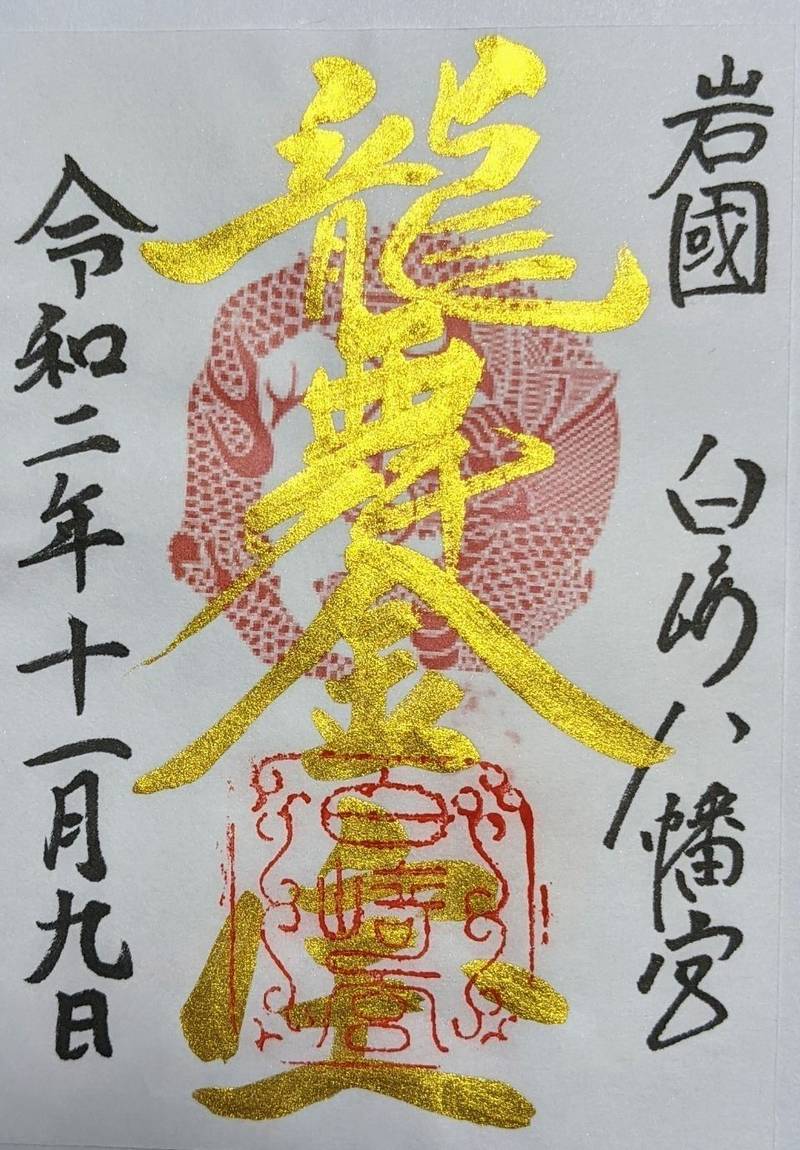 岩國 白崎八幡宮
龍舞金
白崎宮
令和二年十一月九日